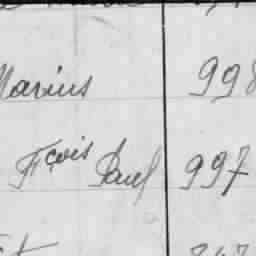 Marius 998
Fçois Paul 997